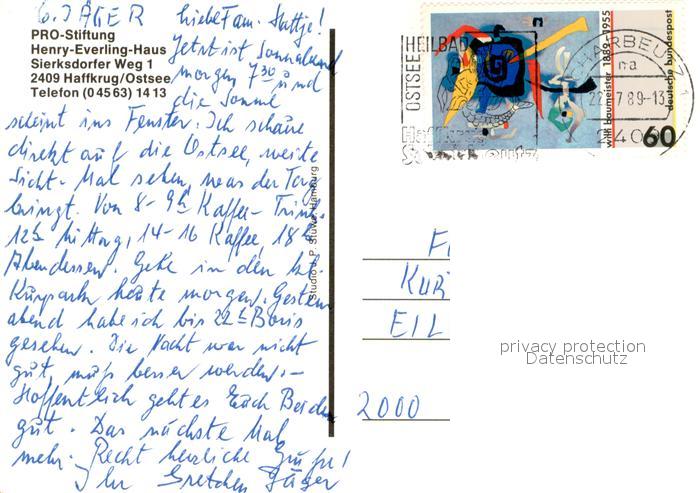 G. JÄGER
PRO-Stiftung
Henry-Everling-Haus
Sierksdorfer Weg 1
2409 Haffkrug/Ostsee
Telefon (0 45 63) 14 13
Liebe Fam. Hattje!
Jetzt ist Sonnabend
morgen 7³⁰ und
die Sonne
scheint ins Fenster. Ich schaue
direkt auf die Ostsee, weite
Sicht. Mal sehen, was der Tag
bringt. Von 8-9h Kaffee-Trink.
12h Mittag, 14-16 Kaffee, 18h
Abendessen. Gehe in den kl.
Kurpark heute morgen. Gestern
abend habe ich bis 22h Boris
gesehen. Die Nacht war nicht
gut, muß besser werden.-
Hoffentlich geht es Euch Beiden
gut. Das nächste Mal
mehr. Recht herzliche Grüße!
Ihr Gretchen Jäger
Studio J. P. Stüwe, Hamburg
OSTSEE HEILBAD
SCHARBEUTZ 1
na
7.89-13
240
willi baumeister 1889-1955
deutsche bundespost
60
KUR
EIL
2000
privacy protection
Datenschutz